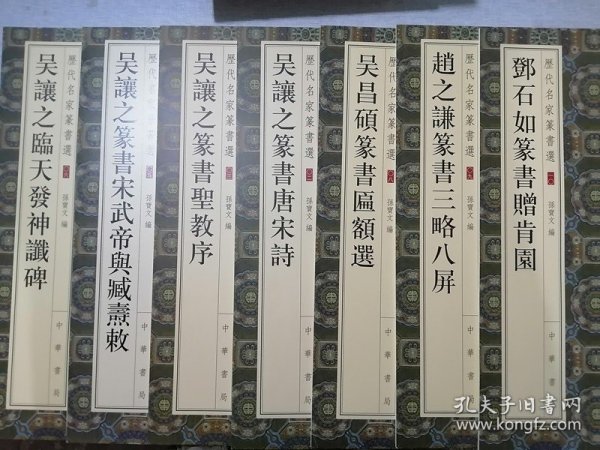 歷代名家篆書選
孫寶文 編
鄧石如篆書贈肯園
中華書局
歷代名家篆書選
孫寶文 編
趙之謙篆書三略八屏
中華書局
歷代名家篆書選
孫寶文 編
吴昌碩篆書匾額選
中華書局
歷代名家篆書選
孫寶文 編
吴讓之篆書唐宋詩
中華書局
歷代名家篆書選
孫寶文 編
吴讓之篆書聖教序
中華書局
歷代名家
孫寶文 編
吴讓之篆書宋武帝與臧燾敕
中華書局
歷代名家篆書選
孫寶文 編
吴讓之臨天發神讖碑
中華書局
孔夫子旧书网
www.kongfz.com